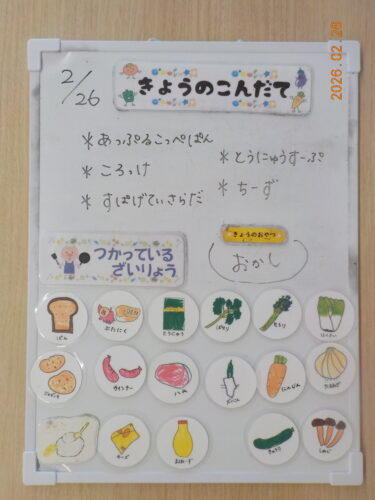 2026.02.26
2/26
きょうのこんだて
＊あっぷるこっぺぱん
＊ころっけ
＊すぱげてぃさらだ
＊とうにゅうすーぷ
＊ちーず
きょうのおやつ
おかし
つかっている
ざいりょう
ぱん
ぶたにく
ぱせり
せろり
はくさい
じゃがいも
ウインナー
ハム
だいこん
にんじん
たまねぎ
チーズ
まよねーず
きゅうり
しめじ